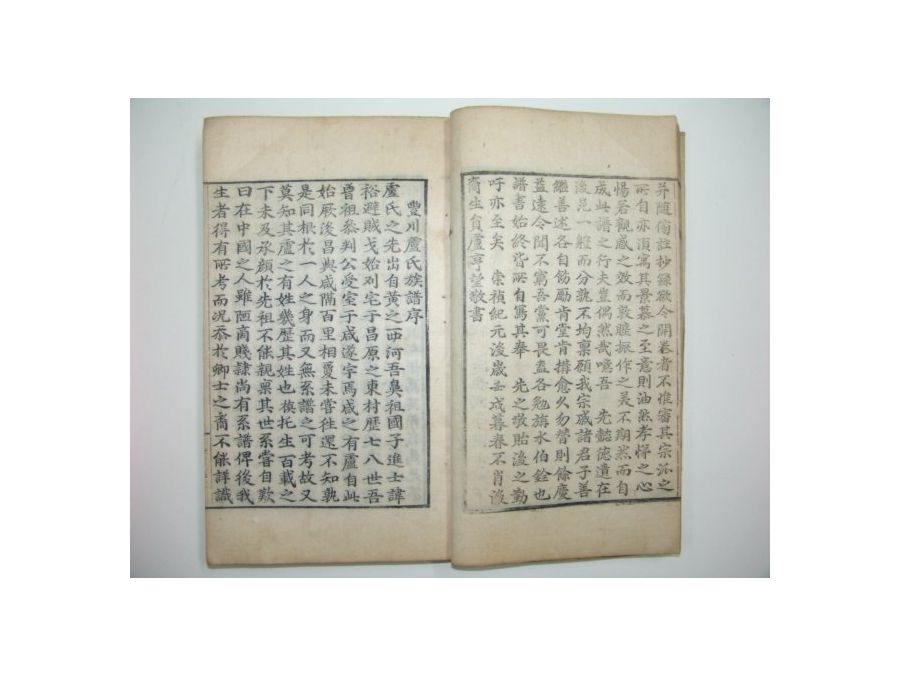 并隨傍註抄錄欲令開卷者不惟審其宗派之
所自亦須寓其景慕之至意則油然孝悌之心
惕若觀感之效而敦睦振作之美不期然而自
成此譜之行夫豈偶然哉噫吾 先懿德遺在
後昆一體而分孰不均稟願我宗戚諸君子善
繼善述各自飭勵肯堂肯搆愈久勿替則餘慶
益遠令聞不寫吾黨可畏盍各勉旃水伯銓也
譜書始終皆所自寫其奉 先之敬貽後之勤
吁亦至矣 崇禎紀元後歲壬戌暮春不肖後
裔生員盧亨望敬書
豐川盧氏族譜序
盧氏之先出自黃之西河吾鼻祖國子進士諱
裕避賊戈始列宅于昌原之東村歷七八世吾
曾祖參判公受室于咸遂宇焉咸之有盧自此
始厥後昌與咸隔百里相戛未嘗往還不知孰
是同根於一人之身而又無系譜之可考故又
莫知其盧之有姓幾歷其姓也 模托生百載之
下未及承顏於先祖不能親稟其世系嘗自歎
曰在中國之人雖陋商賤隸尚有系譜俾後我
生者得有所考而況忝於鄉士之裔不能詳識